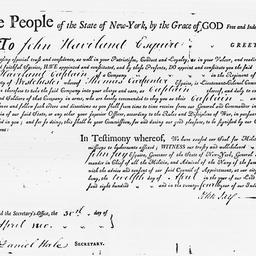 e People of the State of New-York, by the Grace of GOD Free and Inde
To John Haviland Esquire GREET
special trust and confidence, as well in your Patriotism, Conduct and Loyalty, as in your Valour, and readi
and faithful Services, HAVE appointed and constituted, and by these Presents, DO appoint and constitute you the said
Haviland Captain of a Company in the Regiment of
of Westchester whereof Thomas Carpenter Esquire, is Lieutenant-Colonel Comm
therefore to take the said Company into your charge and care, as Captain thereof, and duly to
and Soldiers of the Company in arms, who are hereby commanded to obey you as their Captain
observe and follow such Orders and Directions as you shall from time to time receive from our General and Commander in
of our said State, or any other your superior Officer, according to the Rules and Discipline of War, in pursuance
in you; and for so doing, this shall be your Commission, for and during our good pleasure, to be signified by our Co
In Testimony whereof, We have caused our Seal for Military
to be hereunto affixed: WITNESS our trusty and well-beloved
John Jay Esquire, Governor of the State of New-York, General
mander in Chief of all the Militia, and Admiral of the Navy of the same
with the advice and consent of our said Council of Appointment, at our city
the twelfth day of April in the year of our Lord
sand eight hundred and in the twenty fourth year of our Independ
John Jay
the Secretary's Office, the 30th day of
April 1800.
Daniel Hale SECRETARY.